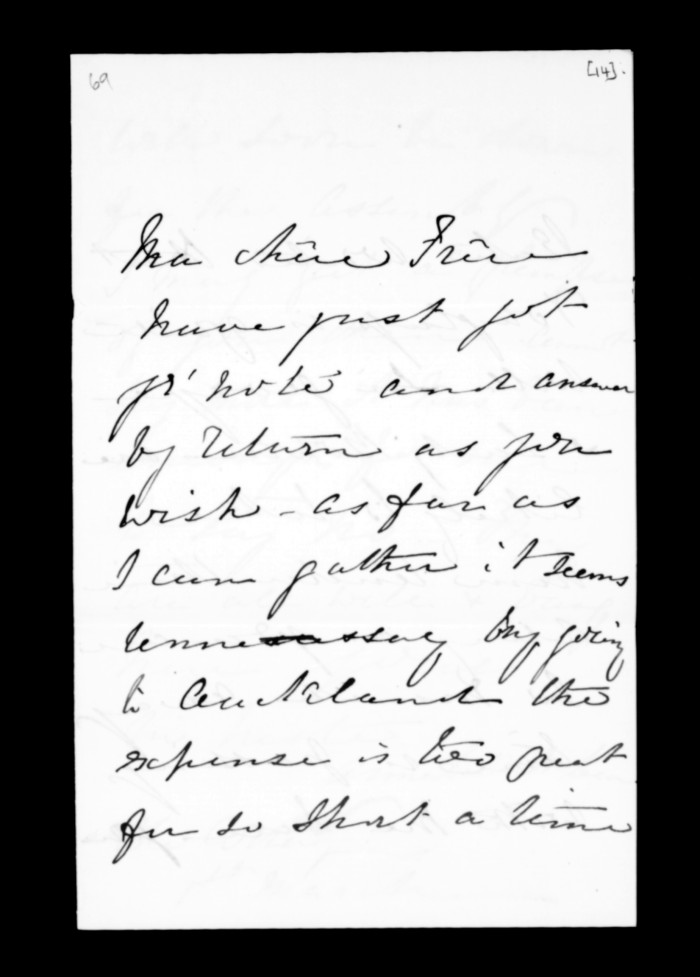 69
[14].
Ma chêre Frêre
have just got
yr' note and answer
by return as you
wish - as far as
I can gather it seems
unnecessary my going
to Auckland the
expense is too great
for so short a time